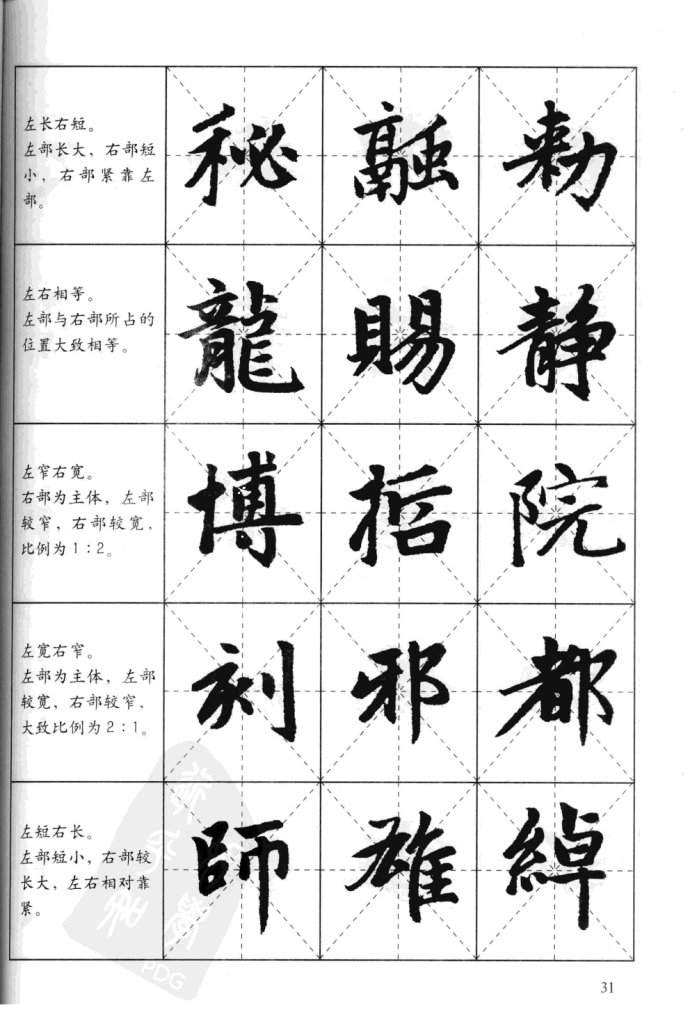 左长右短。
左部长大，右部短
小，右部紧靠左
部。
秘 融 勑
左右相等。
左部与右部所占的
位置大致相等。
龍 賜 静
左窄右宽。
右部为主体，左部
较窄，右部较宽，
比例为1：2。
博 括 院
左宽右窄。
左部为主体，左部
较宽，右部较窄，
大致比例为2：1。
刻 邪 都
左短右长。
左部短小，右部较
长大，左右相对靠
紧。
師 雄 綽
PDG
31